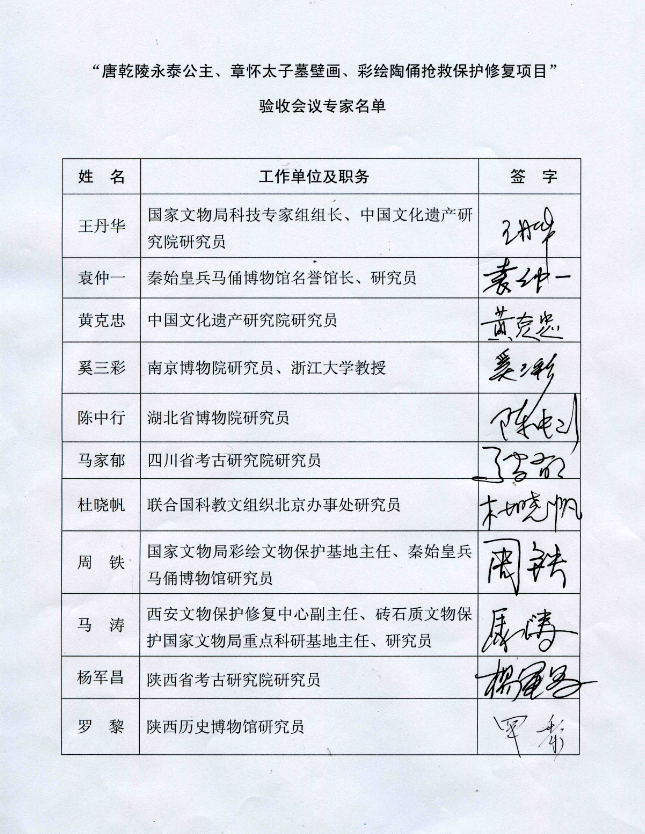 “唐乾陵永泰公主、章怀太子墓壁画、彩绘陶俑抢救保护修复项目”
验收会议专家名单
姓 名 工作单位及职务 签 字
王丹华 国家文物局科技专家组组长、中国文化遗产研
究院研究员 王丹华
袁仲一 秦始皇兵马俑博物馆名誉馆长、研究员 袁仲一
黄克忠 中国文化遗产研究院研究员 黄克忠
奚三彩 南京博物院研究员、浙江大学教授 奚三彩
陈中行 湖北省博物院研究员 陈中行
马家郁 四川省考古研究院研究员 马家郁
杜晓帆 联合国科教文组织北京办事处研究员 杜晓帆
周 铁 国家文物局彩绘文物保护基地主任、秦始皇兵
马俑博物馆研究员 周铁
马 涛 西安文物保护修复中心副主任、砖石质文物保
护国家文物局重点科研基地主任、研究员 马涛
杨军昌 陕西省考古研究院研究员 杨军昌
罗 黎 陕西历史博物馆研究员 罗黎